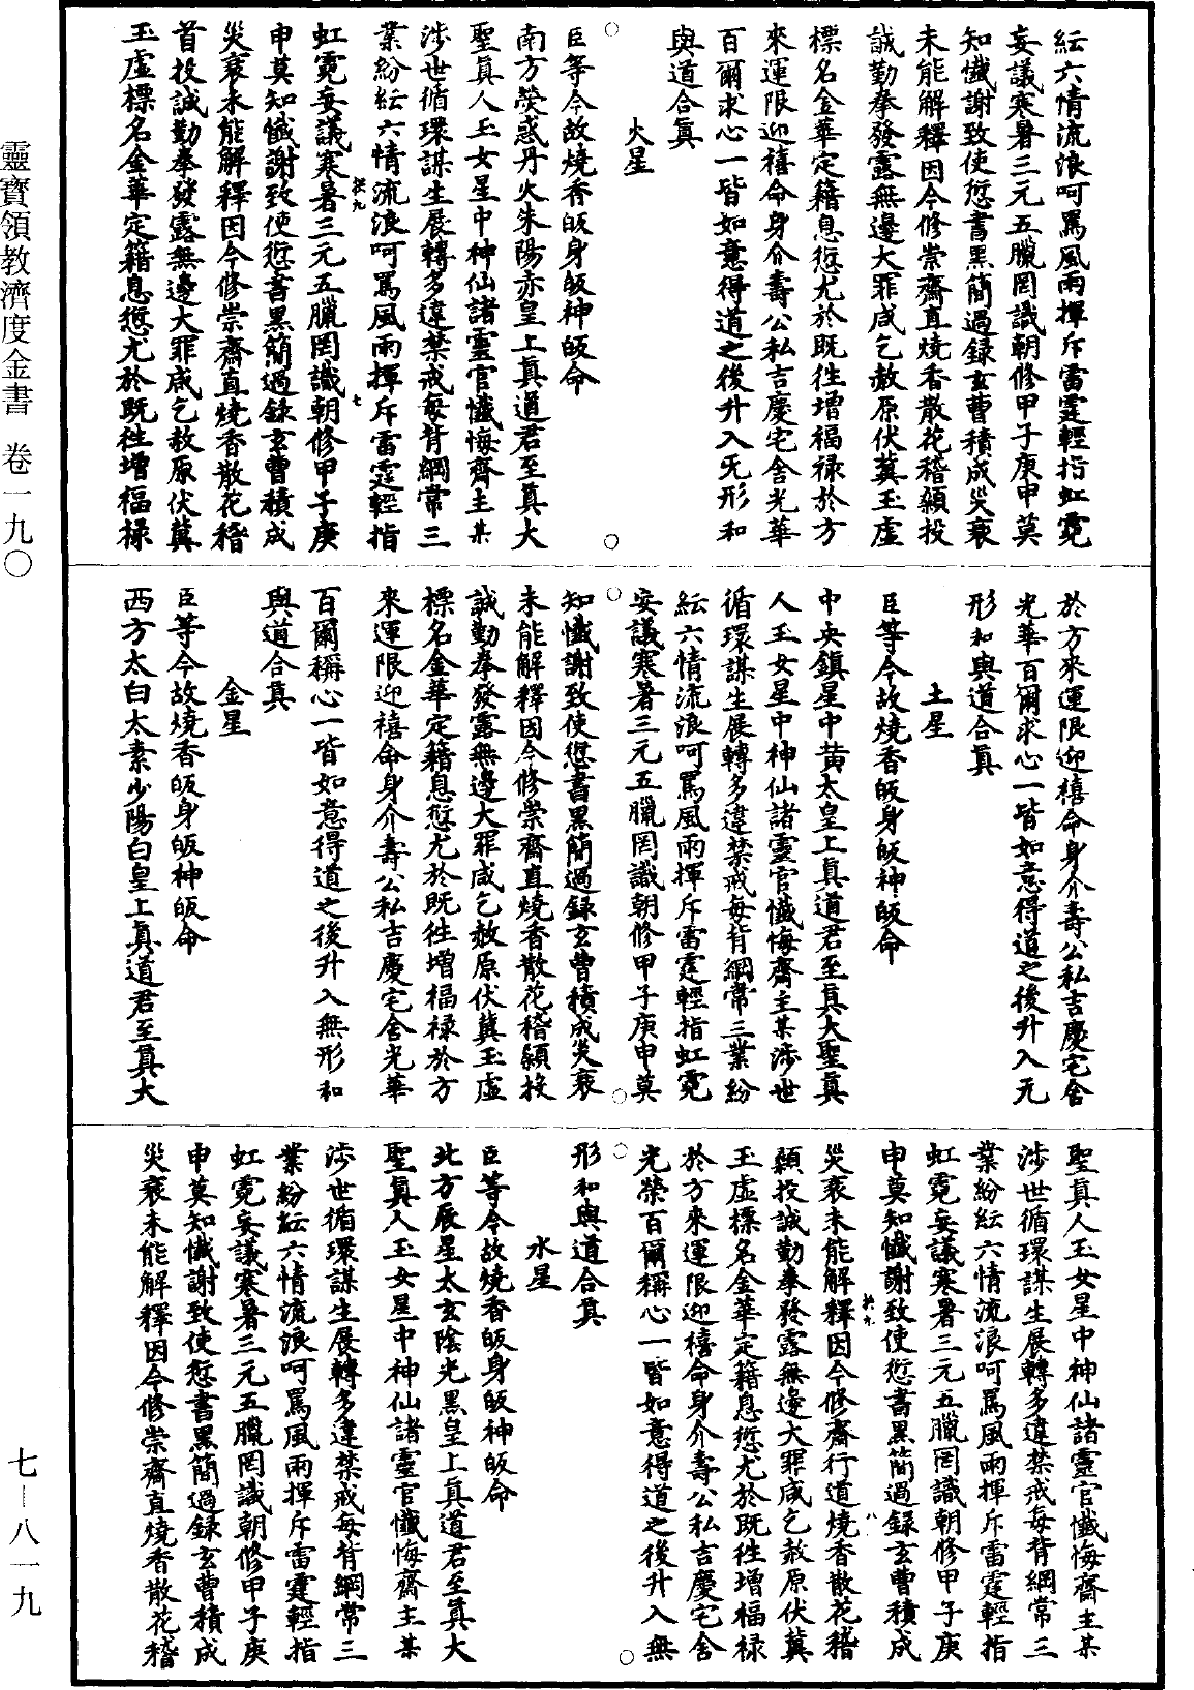 紜六情流浪呵罵風雨揮斥雷霆輕指虹霓
妄議寒暑三元五臘罔識朝修甲子庚申莫
知懺謝致使愆書黑簡過錄玄曹積成災衰
未能解釋因今修崇齋直燒香散花稽顙投
誠勤拳發露無邊大罪咸乞赦原伏冀玉虛
標名金華定籍息愆尤於既往增福祿於方
來運限迎禧命身介壽公私吉慶宅舍光華
百爾求心一皆如意得道之後升入无形和
與道合真
火星
臣等今故燒香皈身皈神皈命
南方熒惑丹火朱陽赤皇上真道君至真大
聖真人玉女星中神仙諸靈官懺悔齋主某
涉世循環謀生展轉多違禁戒每背綱常三
業紛紜六情流浪呵罵風雨揮斥雷霆輕指
虹霓妄議寒暑三元五臘罔識朝修甲子庚
申莫知懺謝致使愆書黑簡過錄玄曹積成
災衰未能解釋因今修崇齋直燒香散花稽
首投誠勤拳發露無邊大罪咸乞赦原伏冀
玉虛標名金華定籍息愆尤於既往增福祿
於方來運限迎禧命身介壽公私吉慶宅舍
光華百爾求心一皆如意得道之後升入无
形和與道合真
土星
臣等今故燒香皈身皈神皈命
中央鎮星中黃太皇上真道君至真大聖真
人玉女星中神仙諸靈官懺悔齋主某涉世
循環謀生展轉多違禁戒每背綱常三業紛
紜六情流浪呵罵風雨揮斥雷霆輕指虹霓
妄議寒暑三元五臘罔識朝修甲子庚申莫
知懺謝致使愆書黑簡過錄玄曹積成災衰
未能解釋因今修崇齋直燒香散花稽顙投
誠勤拳發露無邊大罪咸乞赦原伏冀玉虛
標名金華定籍息愆尤於既往增福祿於方
來運限迎禧命身介壽公私吉慶宅舍光華
百爾稱心一皆如意得道之後升入無形和
與道合真
金星
臣等今故燒香皈身皈神皈命
西方太白太素少陽白皇上真道君至真大
聖真人玉女星中神仙諸靈官懺悔齋主某
涉世循環謀生展轉多違禁戒每背綱常三
業紛紜六情流浪呵罵風雨揮斥雷霆輕指
虹霓妄議寒暑三元五臘罔識朝修甲子庚
申莫知懺謝致使愆書黑簡過錄玄曹積成
災衰未能解釋因今修齋行道燒香散花稽
顙投誠勤拳發露無邊大罪咸乞赦原伏冀
玉虛標名金華定籍息愆尤於既往增福祿
於方來運限迎禧命身介壽公私吉慶宅舍
光榮百爾稱心一皆如意得道之後升入無
形和與道合真
水星
臣等今故燒香皈身皈神皈命
北方辰星太玄陰光黑皇上真道君至真大
聖真人玉女星中神仙諸靈官懺悔齋主某
涉世循環謀生展轉多違禁戒每背綱常三
業紛紜六情流浪呵罵風雨揮斥雷霆輕指
虹霓妄議寒暑三元五臘罔識朝修甲子庚
申莫知懺謝致使愆書黑簡過錄玄曹積成
災衰未能解釋因今修崇齋直燒香散花稽
靈寶領教濟度金書 卷一九〇
七—八一九